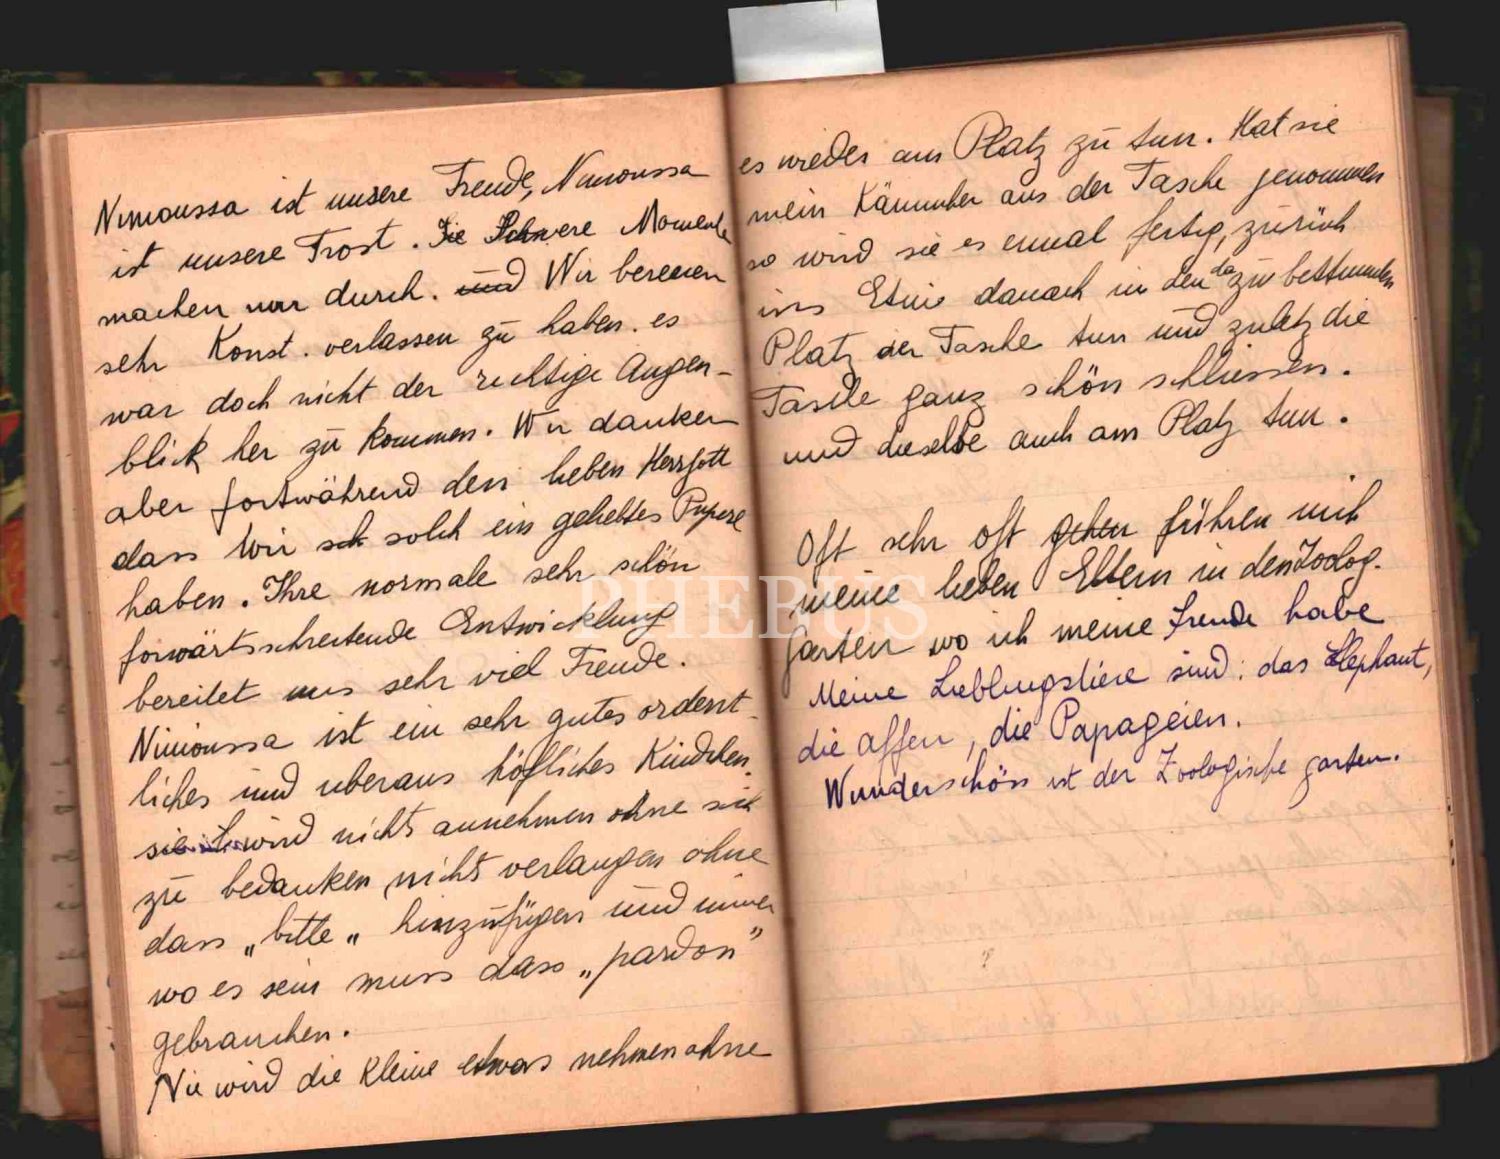 Nimoussa ist unsere Freude, Nimoussa
ist unsere Trost. Die Schwere Momente
machen wir durch. und Wir bereuen
sehr Konst. verlassen zu haben. es
war doch nicht der richtige Augen-
blick her zu kommen. Wir danken
aber fortwährend den lieben Herrgott
dass Wir sch solch ein geliebtes Pupere
haben. Ihre normale sehr schön
forwärtsschreitende Entwicklung
bereitet uns sehr viel Freude.
Nimoussa ist ein sehr gutes ordent-
liches und uberaus höfliches Kindchen.
sie wird nichts annehmen ohne sich
zu bedanken, nichts verlangen ohne
dass „bitte„ hinzufügen und immer
wo es sein muss dass „pardon"
gebrauchen.
Nie wird die Kleine etwas nehmen ohne
es wieder am Platz zu tun. Hat sie
mein Kämmher aus der Tasche genommen
so wird sie es enmal fertig, zurück
ins Etui danach in den dazu bestimmten
Platz der Tasche tun und zuletz die
Tasche ganz schön schliessen.
und dieselbe auch am Platz tun.
Oft sehr oft gehen führen mich
meine lieben Eltern in den Zoolog.
garten wo ich meine freude habe
Meine Lieblingstiere sind: das Elephant,
die affen, die Papageien.
Wunderschön ist der Zoologische garten.
PHEBUS